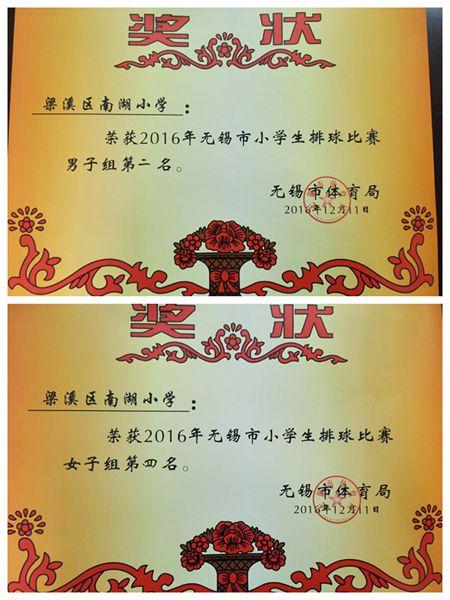 奖状
梁溪区南湖小学：
荣获2016年无锡市小学生排球比赛
男子组第二名。
无锡市体育局
2016年12月11日
奖状
梁溪区南湖小学：
荣获2016年无锡市小学生排球比赛
女子组第四名。
无锡市体育局
2016年12月11日